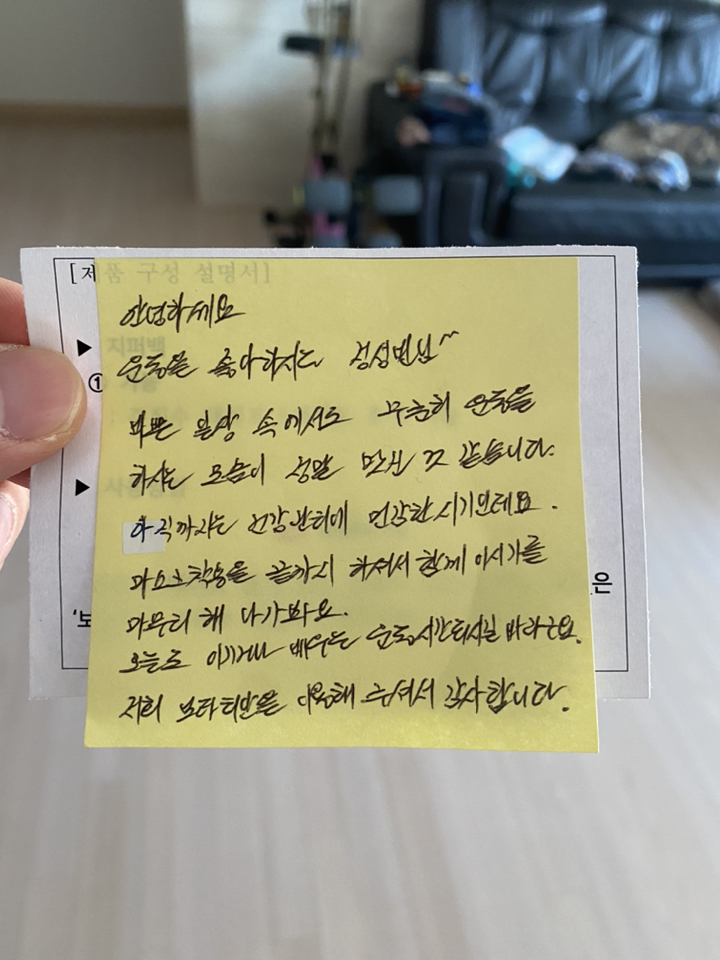 [제품 구성 설명서]
▶ 지퍼백
①
▶
안녕하세요
운동을 좋아하시는 정성빈님^^
바쁜 일상 속에서도 꾸준히 운동을
하시는 모습이 정말 멋진 것 같습니다.
아직까지는 건강관리에 민감한 시기인데요.
마스크착용을 끝까지 하셔서 함께 이시기를
마무리 해 나가봐요.
오늘도 이기거나 배우는 운동시간되시길 바라구요.
저희 보타티만을 이용해 주셔서 감사합니다.